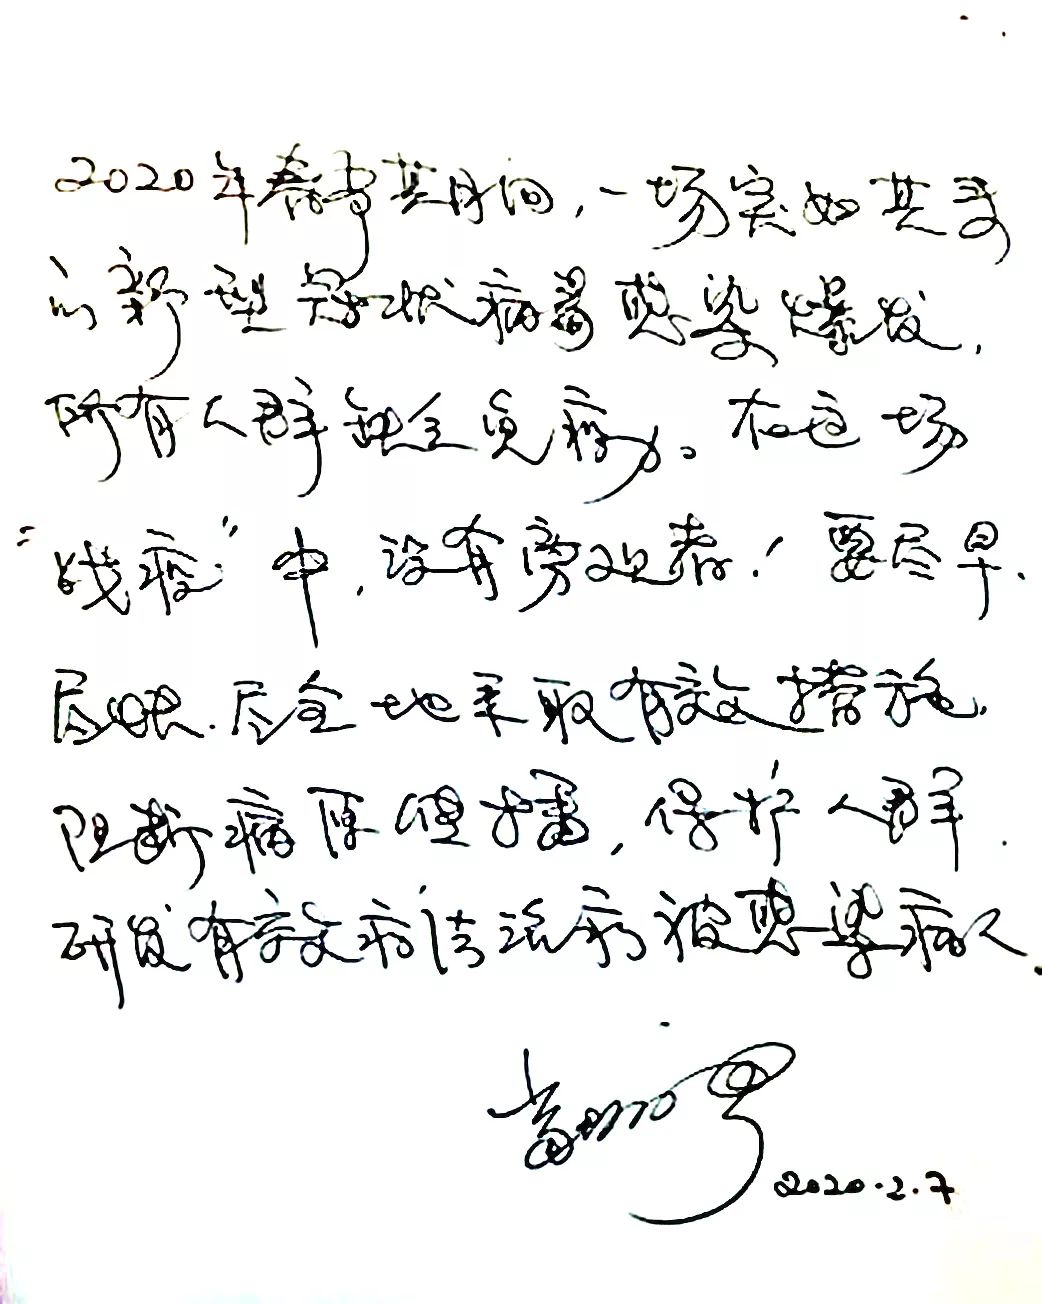 2020年春节期间，一场突如其来
的新型冠状病毒感染爆发，
所有人群缺乏免疫力。在这场
“战疫”中，没有旁观者！要尽早、
尽快、尽全地采取有效措施，
阻断病原体传播，保护人群，
研发有效疗法治疗被感染病人。
2020.2.7